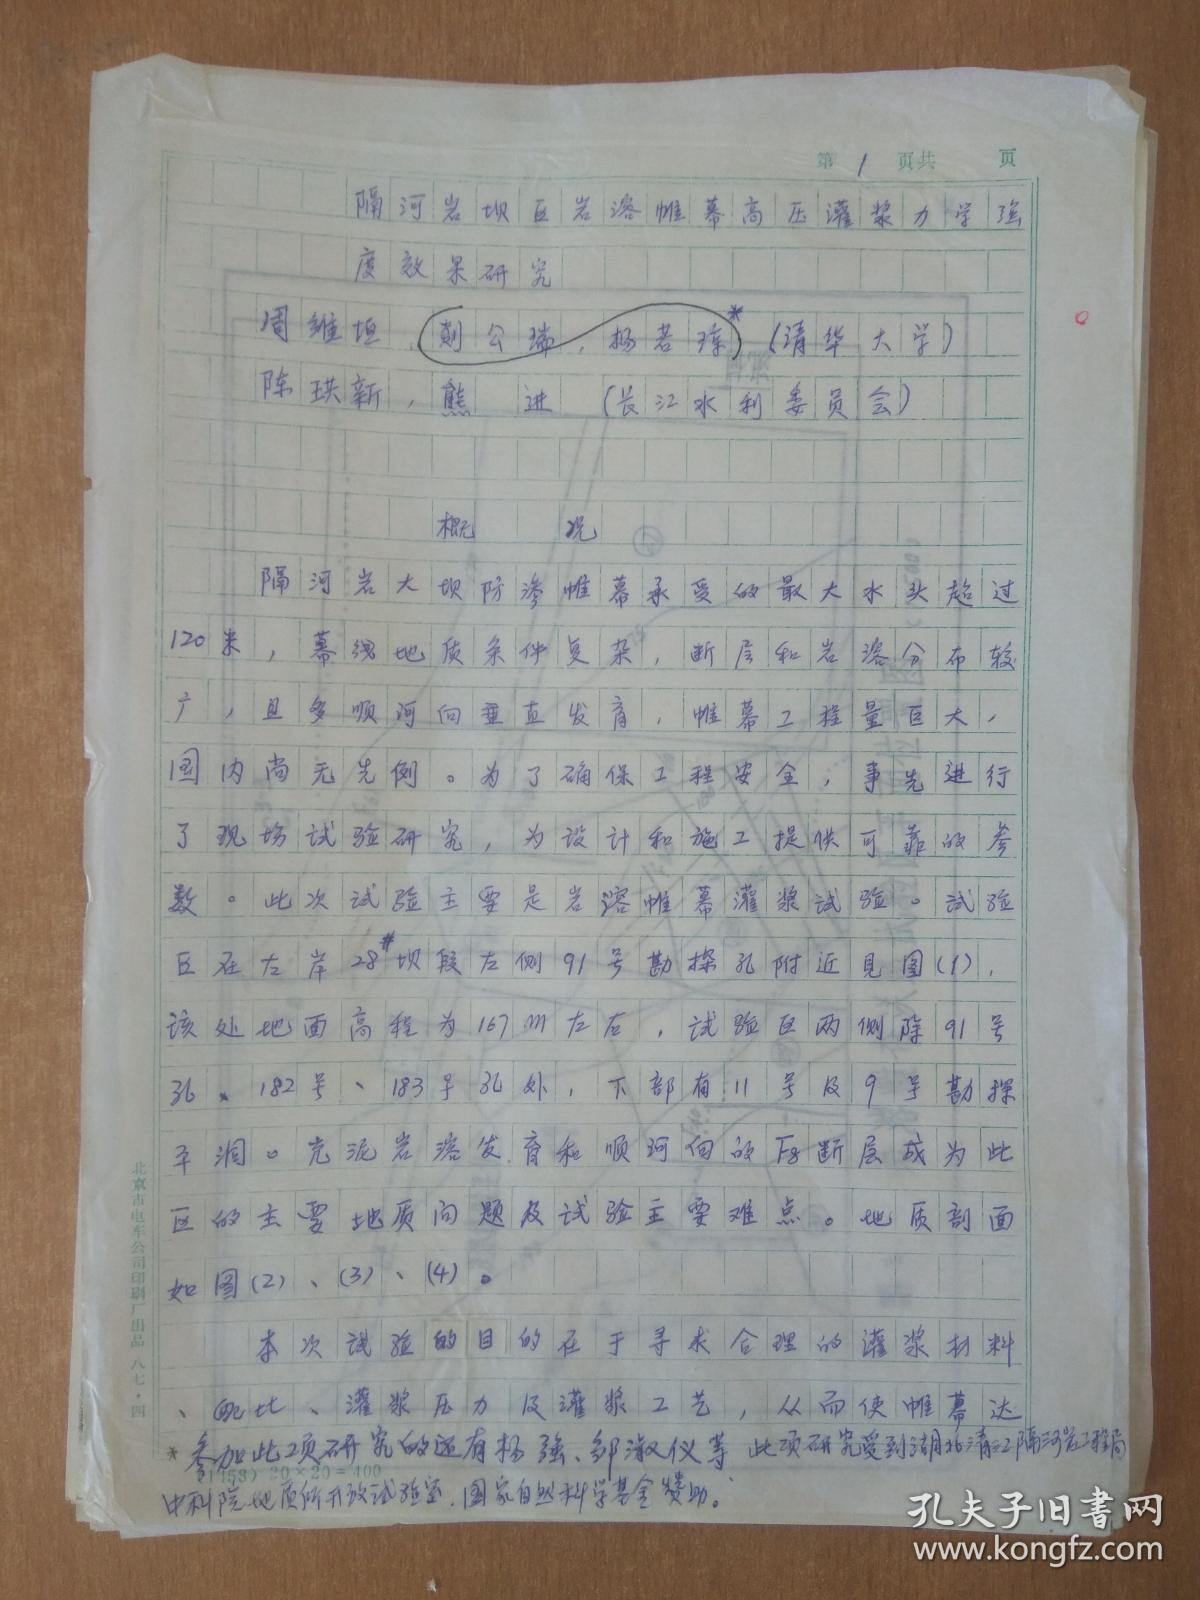 第 1 页共 页
隔河岩坝区岩溶帷幕高压灌浆力学强
度效果研究
周维垣,剡公瑞,杨若琼*(清华大学)
陈珙新,熊 进 (长江水利委员会)
概 况
隔河岩大坝防渗帷幕承受的最大水头超过
120米,幕线地质条件复杂,断层和岩溶分布较
广,且多顺河向垂直发育,帷幕工程量巨大,
国内尚无先例。为了确保工程安全,事先进行
了现场试验研究,为设计和施工提供可靠的参
数。此次试验主要是岩溶帷幕灌浆试验。试验
区在左岸28#坝段左侧91号勘探孔附近见图(1),
该处地面高程为167m左右,试验区两侧除91号
孔、182号、183号孔处,下部有11号及9号勘探
平洞。充泥岩溶发育和顺河向的F8断层成为此
区的主要地质问题及试验主要难点。地质剖面
如图(2)、(3)、(4)。
本次试验的目的在于寻求合理的灌浆材料
、配比、灌浆压力及灌浆工艺,从而使帷幕达
*参加此项研究的还有杨强、邹淑仪等 此项研究受到湖北清江隔河岩工程局
(1453) 20×20=400
中科院地质所开放试验室,国家自然科学基金赞助。
北京市电车公司印刷厂出品 八七·四
孔夫子旧书网
www.kongfz.com